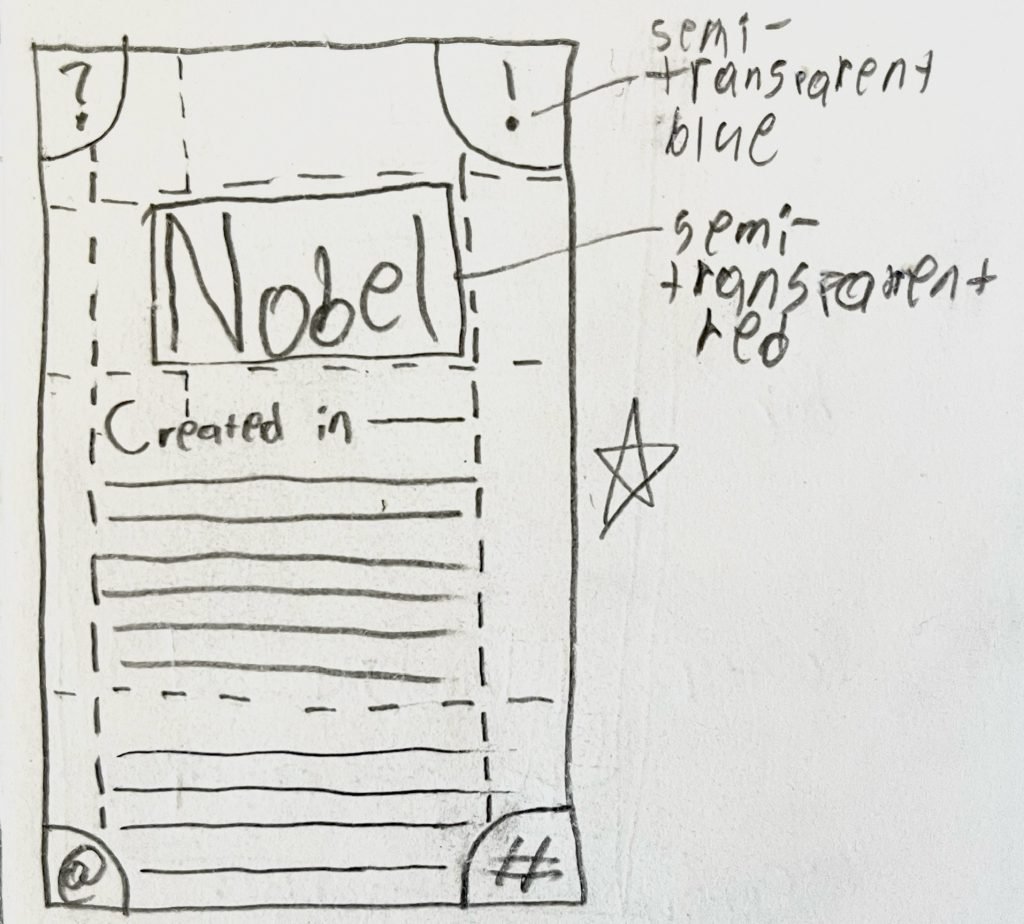 ?
!
semi-
transparent
blue
Nobel
semi-
transparent
red
Created in
@
#